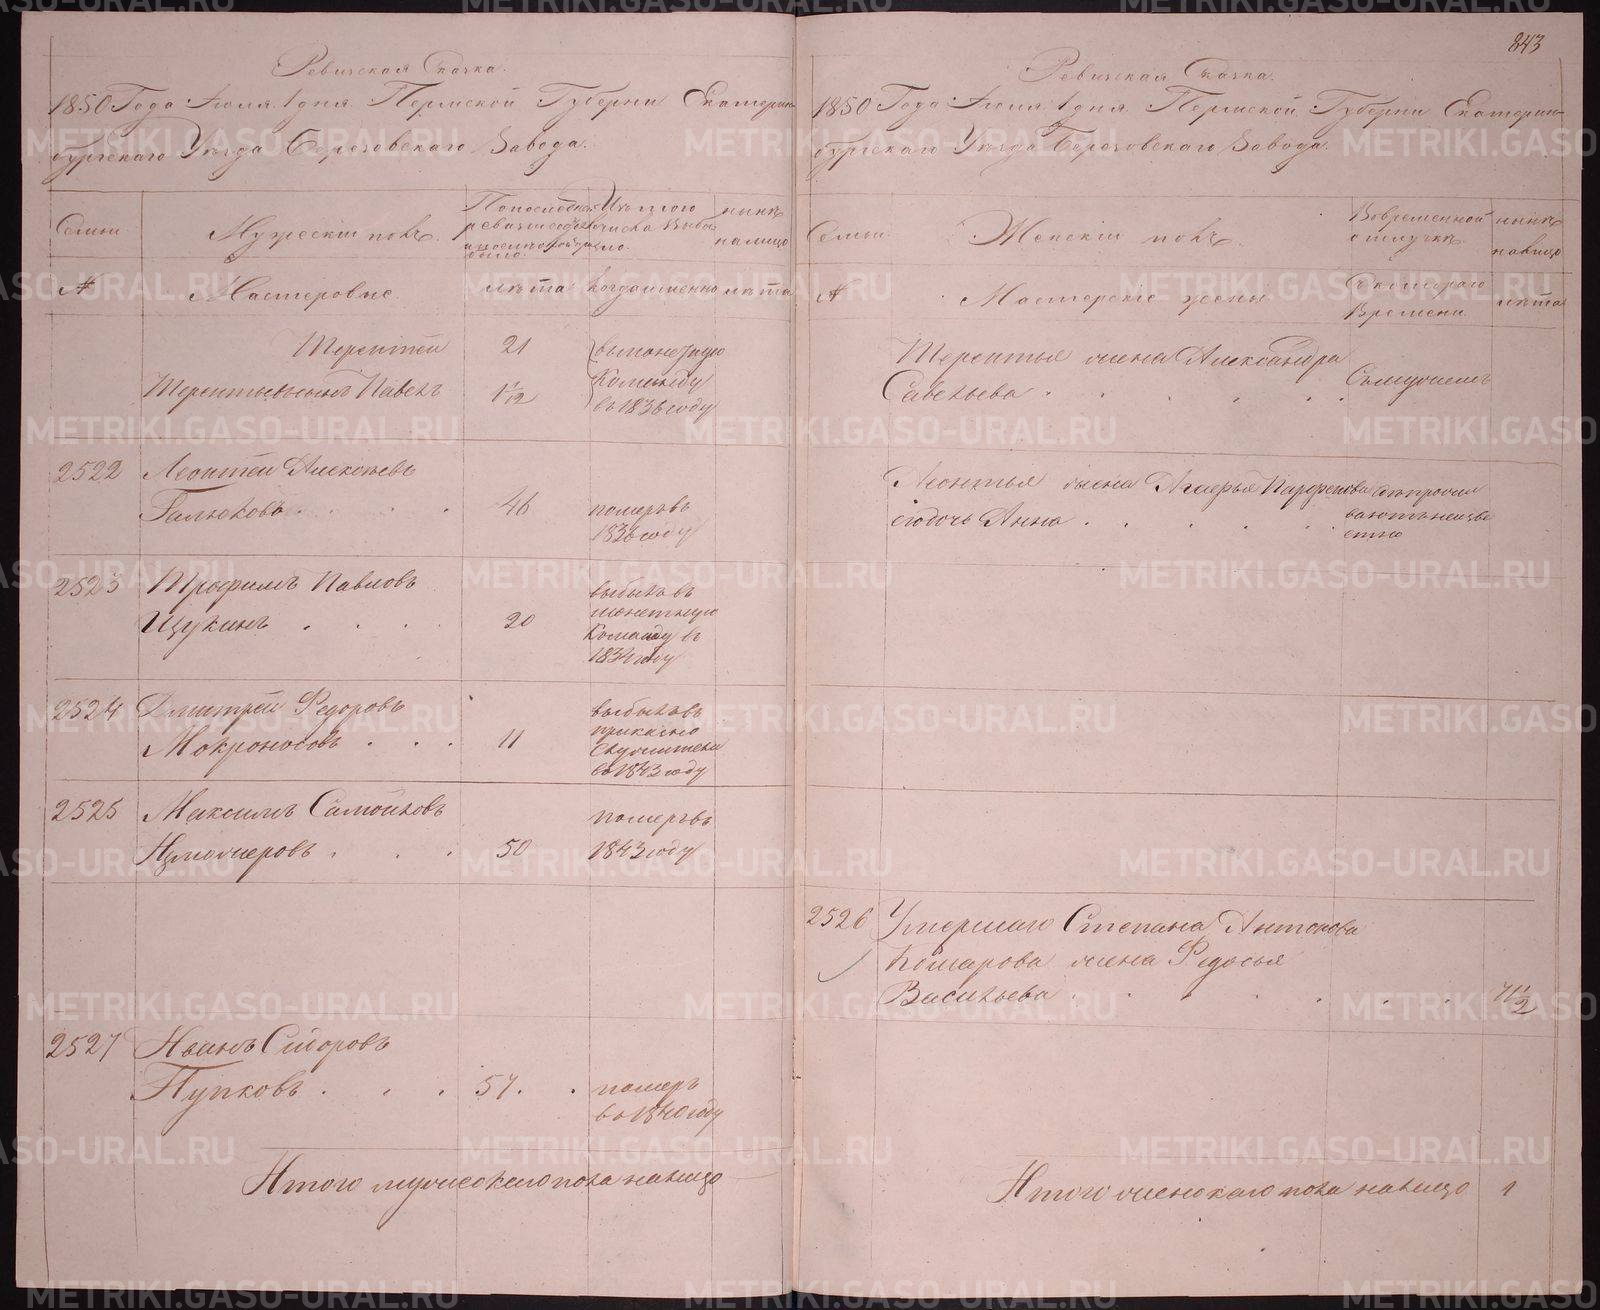 Ревизская Сказка.
1850 Года Июля 1 дня Пермской Губерни Екатерин-
бургскаго Уезда Березовскаго Завода.
Семьи
Мужеский полъ.
По последней ревизии состояло и после оной прибыло.
Изъ того числа выбыло.
ныне на лицо
№
Мастеровые
лета
когда именно
лета
Терентей 21
Терентьева сынъ Павелъ 1 1/2
в монетную
Команду
въ 1836 году
2522 Леонтей Алексеевъ
Галюковъ 46
померъ въ
1836 году
2523 Трофимъ Павловъ
Щукинъ 20
выбылъ въ
монетную
Команду въ
1834 году
2524 Дмитрей Федоровъ
Мокроносовъ 11
выбылъ въ
въ 1843 году
2525 Максимъ Самойловъ
Измоперовъ 50
померъ въ
1843 году
2527 Иванъ Сидоровъ
Пупковъ 57
померъ
въ 1840 году
Итого мужескаго пола на лицо
843
Ревизская Сказка.
1850 Года Июля 1 дня Пермской Губерни Екатерин-
бургскаго Уезда Березовскаго Завода.
Семьи
Женский полъ.
Во временной
отлучке
ныне
на лицо
№
Мастерские жены
Съ котораго
Времени
лета
Терентья жена Александра
Савельева
Съ мужемъ
Леонтья жена Дарья Парфенова
его дочь Анна
где проживаютъ неизвестно
2526 Умершаго Степана Антонова
Комарова жена Федосья
Васильева 71 1/2
Итого женскаго пола на лицо 1
METRIKI.GASO-URAL.RU